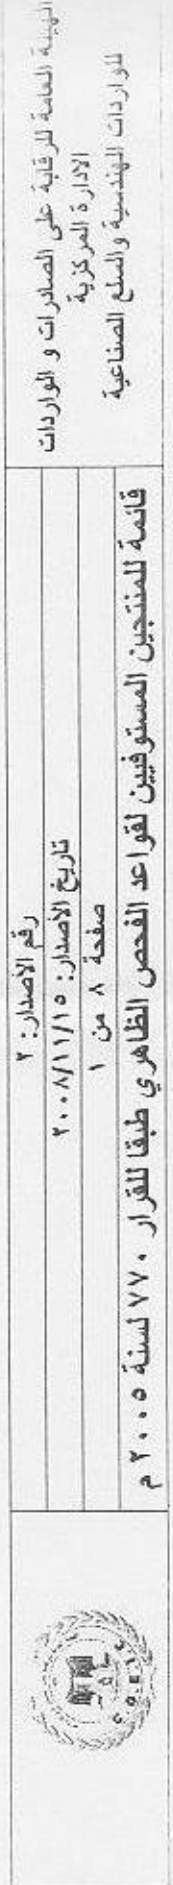 الهيئة العامة للرقابة على الصادرات و الواردات
الادارة المركزية
للواردات الهندسية والسلع الصناعية
رقم الأصدار: ٢
تاريخ الأصدار: ٢٠٠٨/١١/١٥
صفحة ٨ من ١
قائمة للمنتجين المستوفيين لقواعد الفحص الظاهري طبقا للقرار ٧٧٠ لسنة ٢٠٠٥ م
G.O.E.I.C